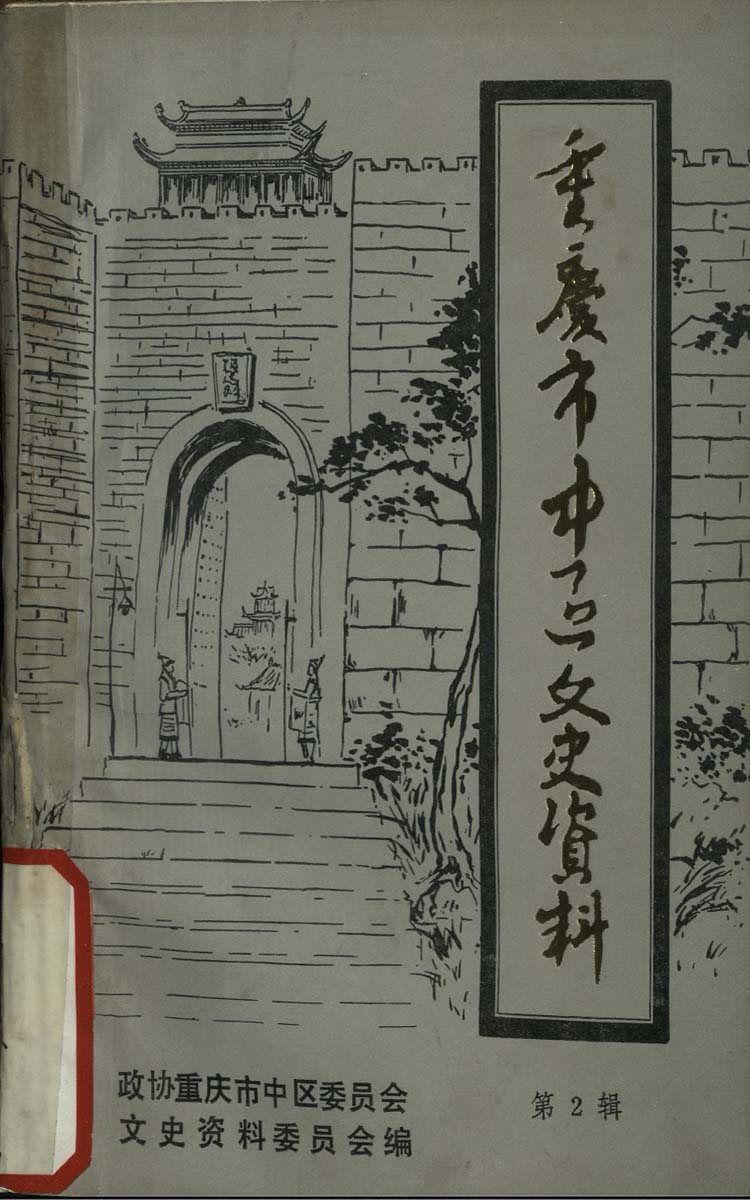 重慶市中区文史資料
政协重庆市中区委员会
文史资料委员会编
第2辑